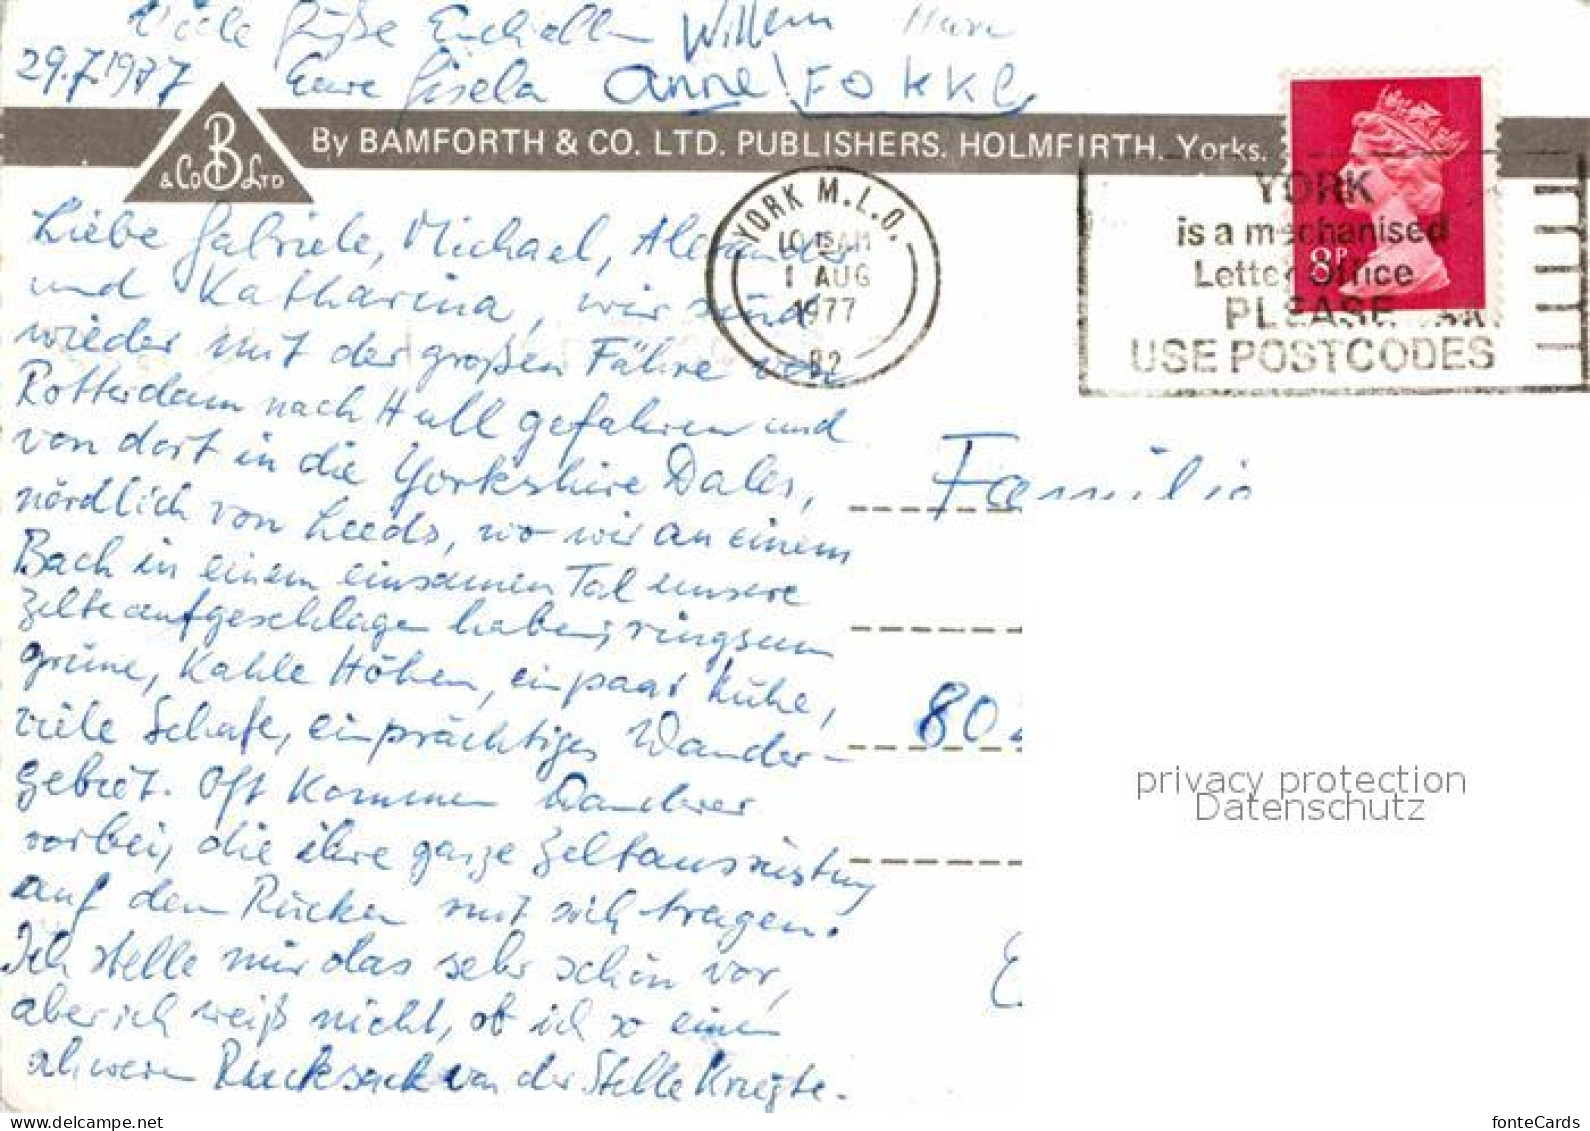 Viele Grüße Euch allen Willem
29.7.1977 Eure Gisela Anne FOKKE
B & Co Ltd
By BAMFORTH & CO. LTD. PUBLISHERS. HOLMFIRTH. Yorks.
YORK M.L.O.
10 15 AM
1 AUG
1977
YORK
is a mechanised
Letter Office
PLEASE
USE POSTCODES
8P
Liebe Gabriele, Michael, Alexander
und Katharina, wir sind
wieder mit der großen Fähre von
Rotterdam nach Hull gefahren und
von dort in die Yorkshire Dales,
nördlich von Leeds, wo wir an einem
Bach in einem einsamen Tal unsere
Zelte aufgeschlagen haben; ringsum
grüne, kahle Höhen, ein paar Kühe,
viele Schafe, ein prächtiges Wander-
gebiet. Oft kommen Wanderer
vorbei, die ihre ganze Zeltausrüstung
auf dem Rücken mit sich tragen.
Ich stelle mir das sehr schön vor,
aber ich weiß nicht, ob ich so einen
schweren Rucksack von der Stelle kriegte.
Familie
80
privacy protection
Datenschutz
www.delcampe.net
fonteCards